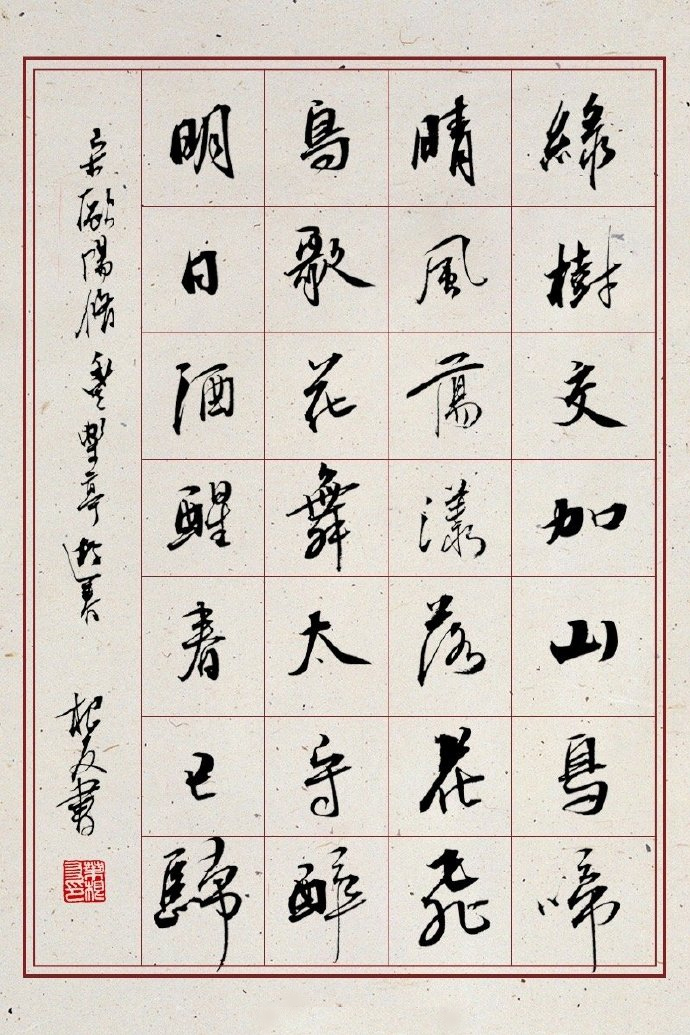 綠樹交加山鳥啼
晴風蕩漾落花飛
鳥歌花舞太守醉
明日酒醒春已歸
宋歐陽脩豐樂亭遊春
根友書